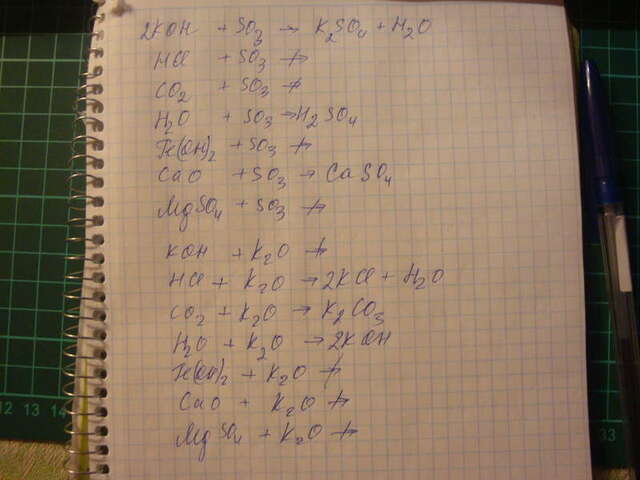 2KOH + SO3 → K2SO4 + H2O
HCl + SO3 ↛
CO2 + SO3 ↛
H2O + SO3 → H2SO4
Fe(OH)2 + SO3 ↛
CaO + SO3 → CaSO4
MgSO4 + SO3 ↛
KOH + K2O ↛
HCl + K2O → 2KCl + H2O
CO2 + K2O → K2CO3
H2O + K2O → 2KOH
Fe(OH)2 + K2O ↛
CaO + K2O ↛
MgSO4 + K2O ↛
12 13 14
33